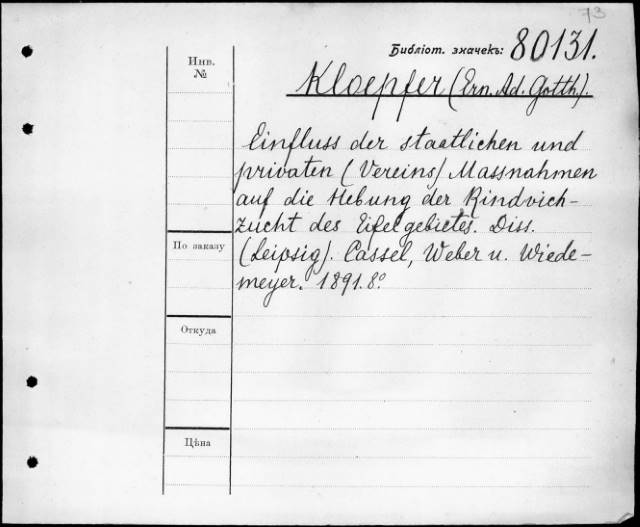 73
Библіот. значекъ: 80131.
Инв.
№
Kloepfer (Ern. Ad. Gotth.).
Einfluss der staatlichen und
privaten (Vereins) Massnahmen
auf die Hebung der Rindvieh-
zucht des Eifelgebietes. Diss.
По заказу
(Leipzig). Cassel, Weber u. Wiede-
meyer. 1891. 8°.
Откуда
Цѣна